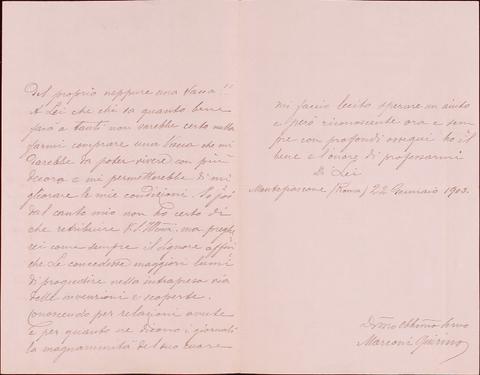 del proprio neppure una vacca!!
A Lei che chi sa quanto bene
farà a tanti non sarebbe certo nulla
farmi comprare una vacca che mi
darebbe da poter vivere con più
decoro e mi permetterebbe di mi
gliorare le mie condizioni. Io poi
dal canto mio non ho certo di
che retribuire V.S. Illma. ma preghe
rei come sempre il Signore affin
che Le concedesse maggiori lumi
di progredire nella intrapresa via
delle invenzioni e scoperte.
Conoscendo per relazioni avute
e per quanto ne dicono i giornali
la magnanimità del suo cuore
mi faccio lecito sperare un aiuto
e però riconoscente ora e sem
pre con profondi ossequi ho il
bene e l'onore di professarmi
Di Lei
Montefiascone (Roma) 22 Gennaio 1903.
Devmo Obbmo Servo
Marconi Quirino